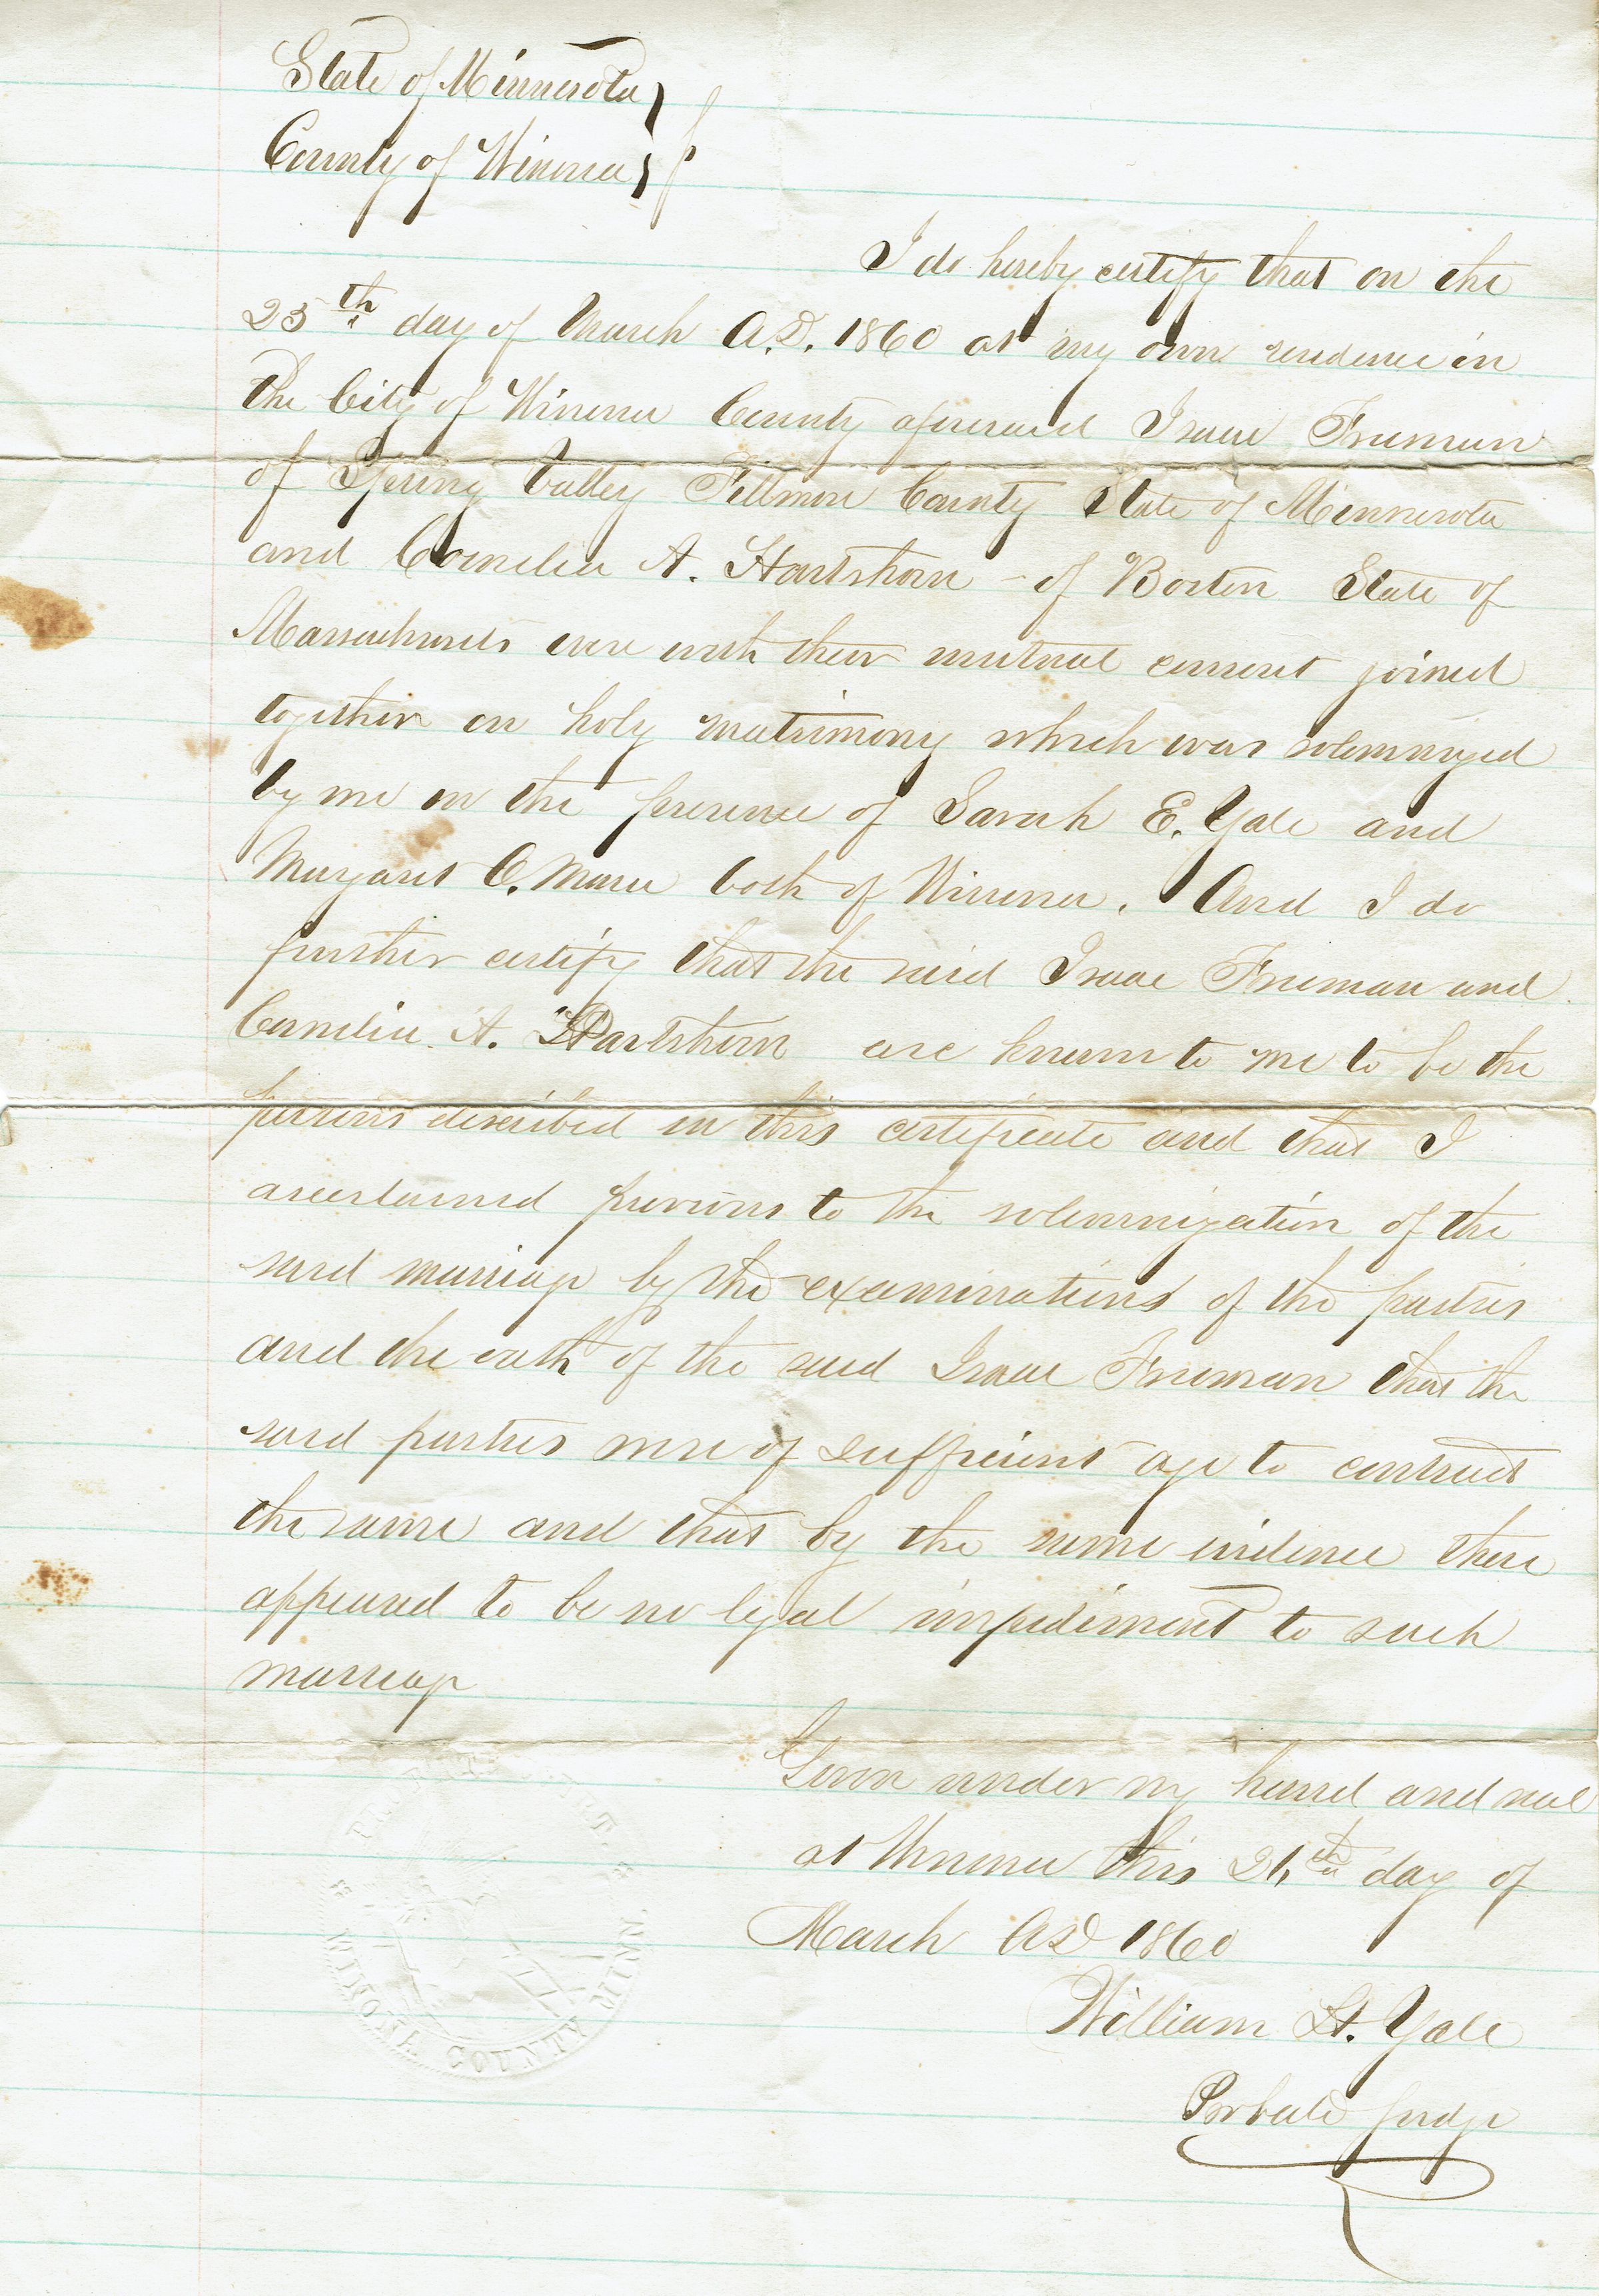 State of Minnesota }
County of Winona } ss
I do hereby certify that on the
25th day of March A.D. 1860 at my own residence in
the City of Winona County aforesaid Isaac Freeman
of Spring Valley Fillmore County State of Minnesota
and Cornelia A. Hartshorn - of Boston State of
Massachusets were with their mutual consent joined
together in holy matrimony which was solemnized
by me in the presence of Sarah E. Yale and
Margaret C. both of Winona. And I do
further certify that the said Isaac Freeman and
Cornelia A. Hartshorn are known to me to be the
persons described in this certificate and that I
ascertained previous to the solemnization of the
said marriage by the examinations of the parties
and the oath of the said Isaac Freeman that the
said parties were of sufficient age to contract
the same and that by the same evidence there
appeared to be no legal impediment to such
marriage
Given under my hand and seal
at Winona this day of
March AD 1860
William H. Yale
Probate Judge
WINONA COUNTY MINN.